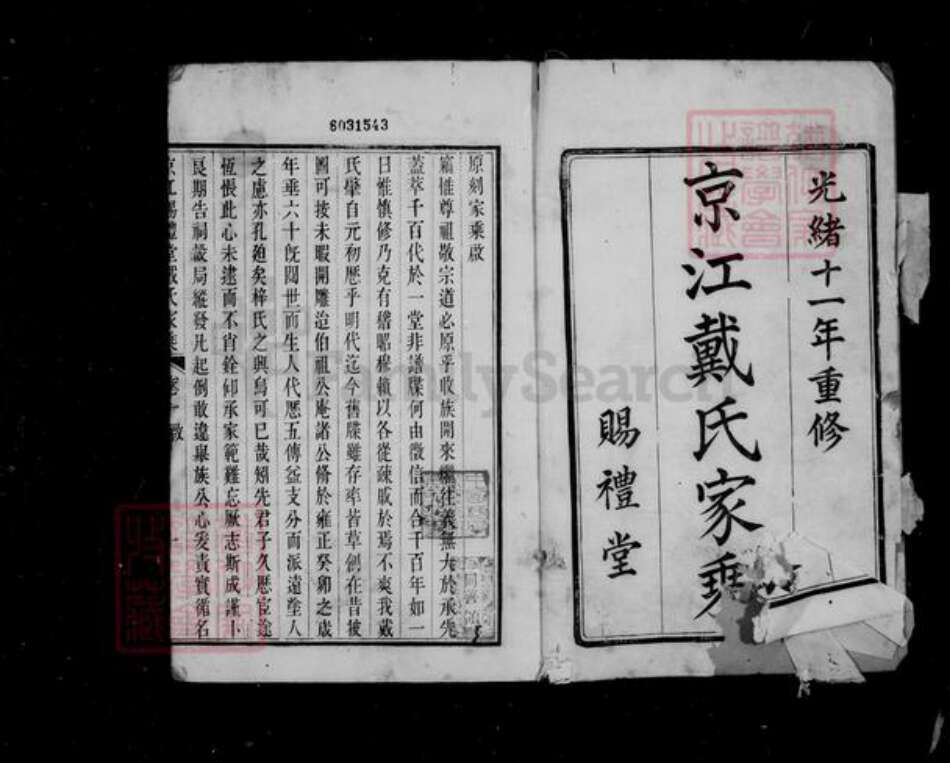 光緒十一年重修
京江戴氏家乘
賜禮堂
6031543
原刻家乘啟
竊惟尊祖敬宗道必原乎收族開來繼往義無大於承先
蓋萃千百代於一堂非譜牒何由徵信而合千百年如一
日惟慎修乃克有稽昭穆賴以各從疎戚於焉不爽我戴
氏肇自元初歷乎明代迄今舊牒雖存率皆草創在昔披
圖可按未暇開雕迨伯祖公庵諸公脩於雍正癸卯之歲
年垂六十旣閱世而生人代歷五傳益支分而派遠塋人
之慮亦孔廹矣梓氏之興烏可已哉矧先君子久歷宦途
恆悵此心未逮而不肖銓仰承家範難忘厥志斯成謹卜
良期告祠設局縱發凡起例敢違舉族公心爰責實循名
京江賜禮堂戴氏家乘 卷一 啟 一
FamilySearch